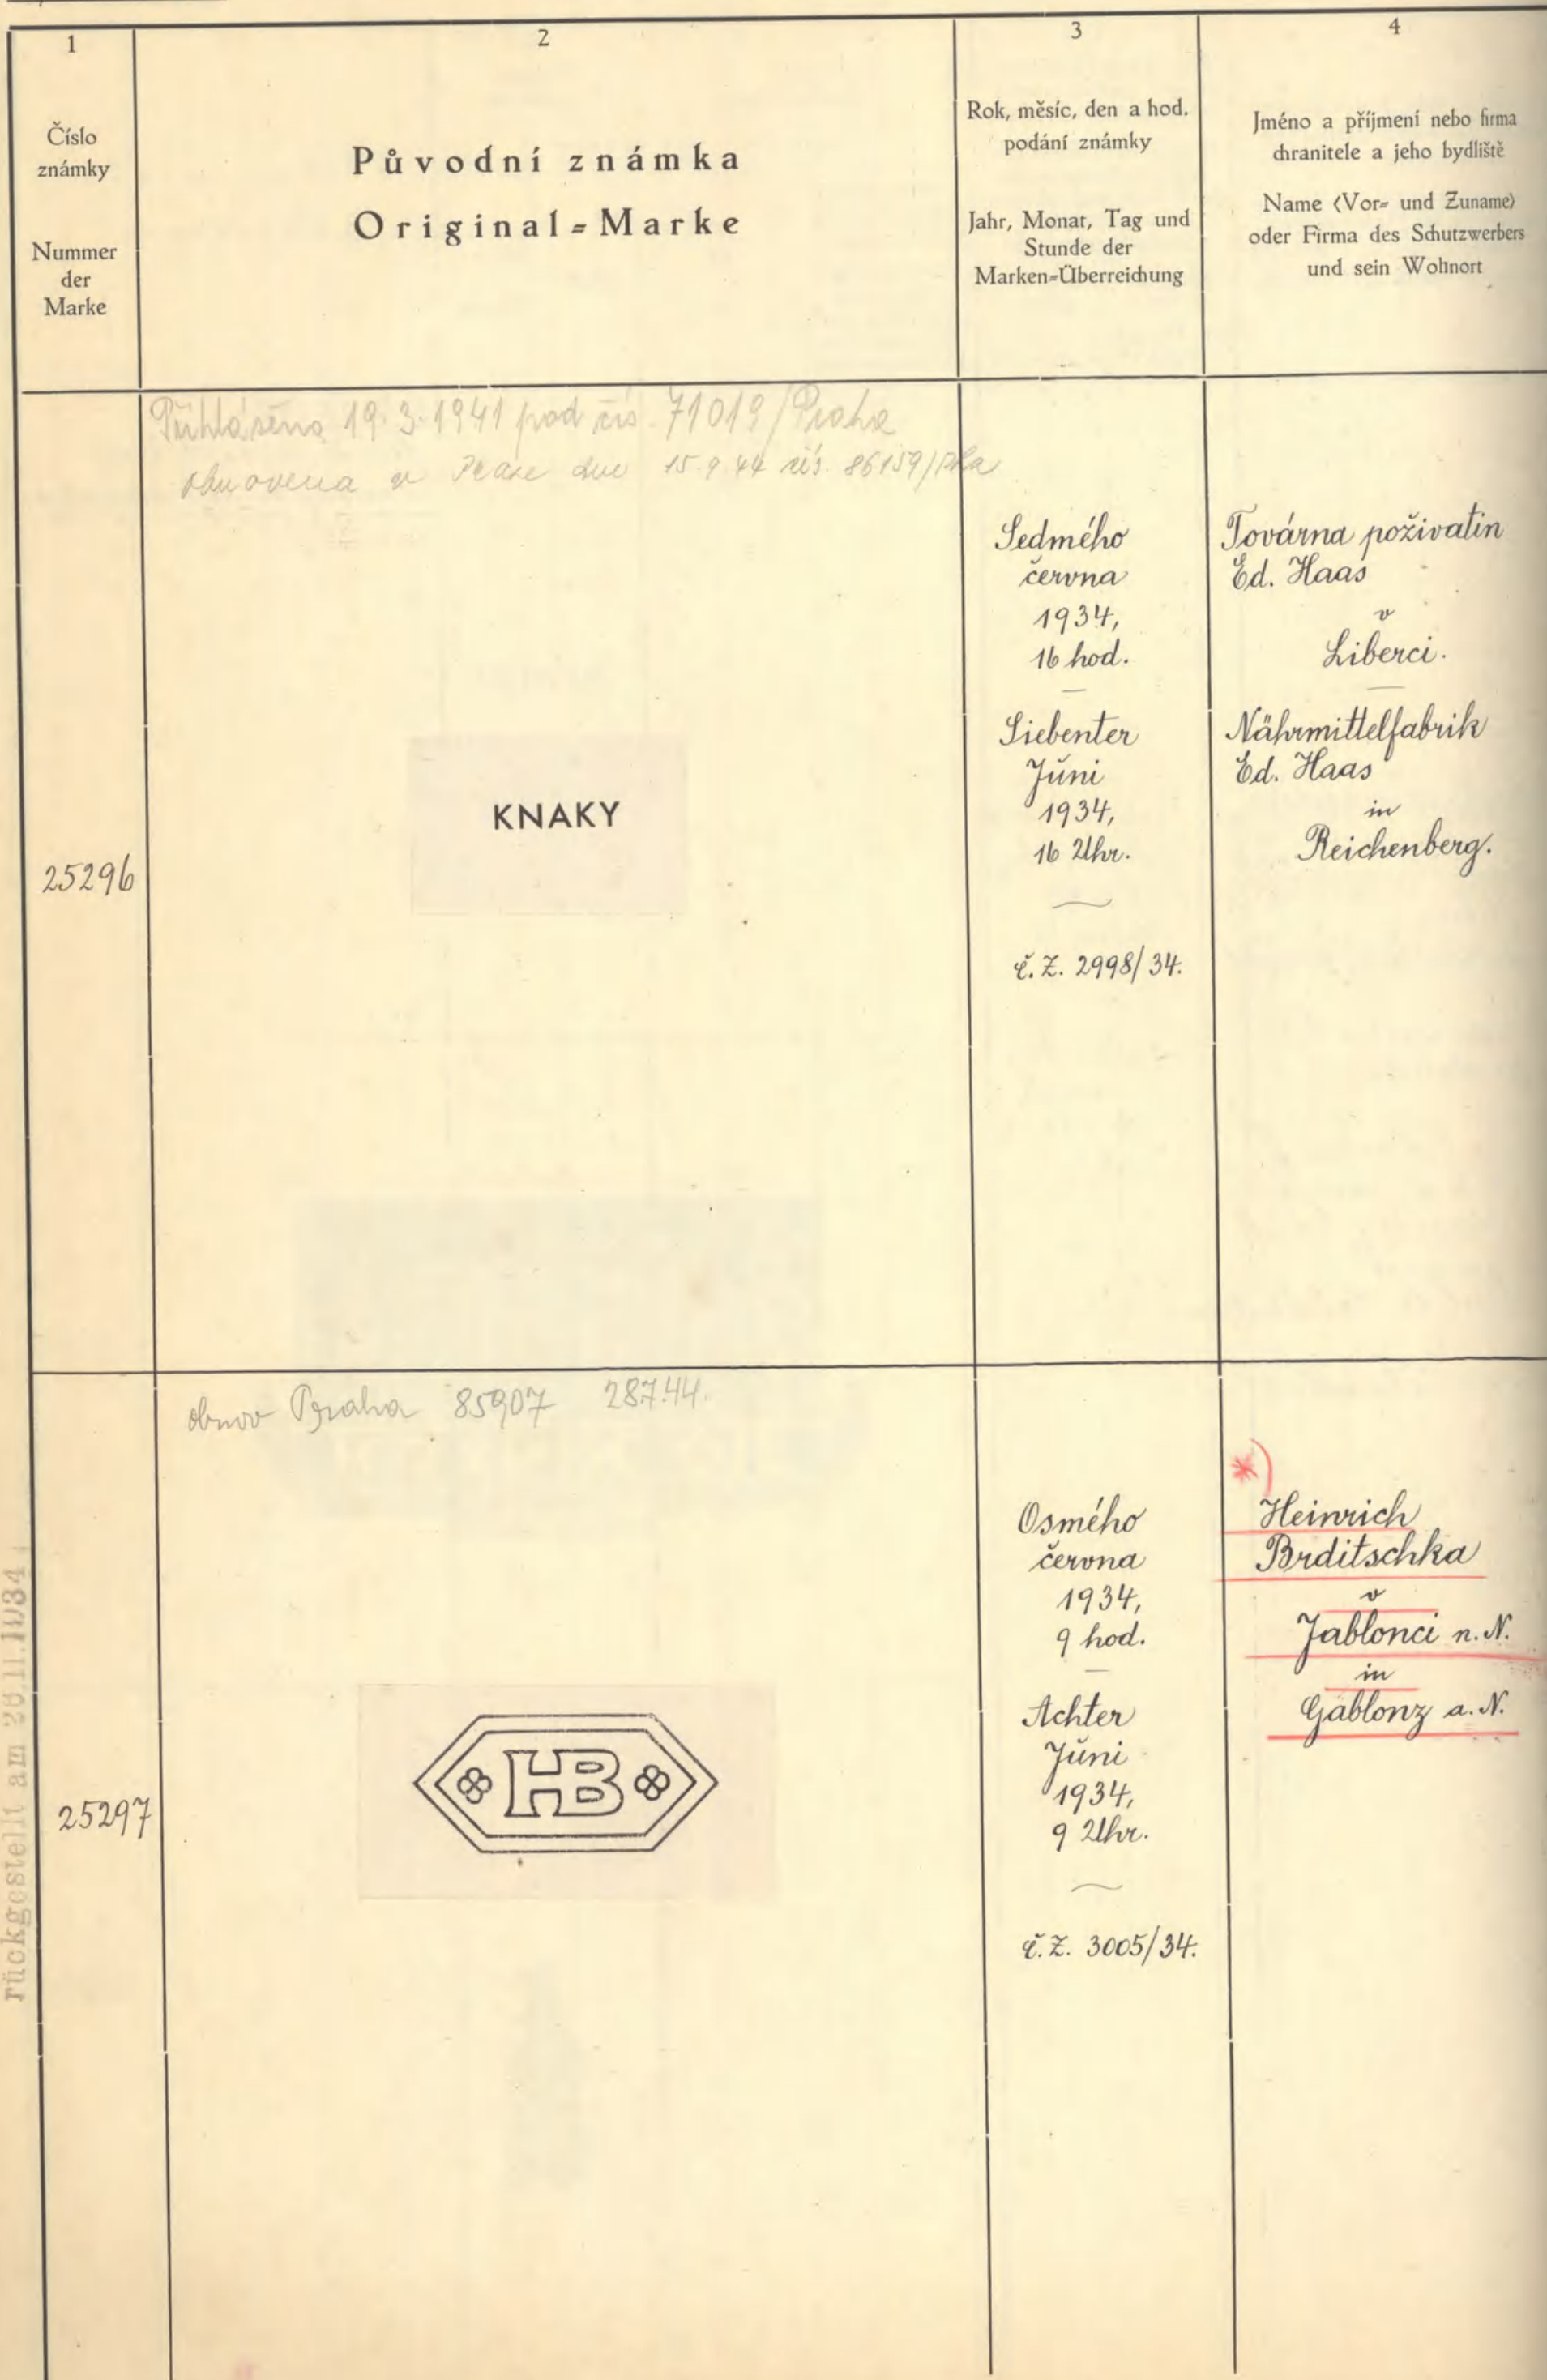 1
2
3
4
Číslo
známky
Nummer
der
Marke
Původní známka
Original=Marke
Rok, měsíc, den a hod.
podání známky
Jahr, Monat, Tag und
Stunde der
Marken=Überreichung
Jméno a příjmení nebo firma
chranitele a jeho bydliště
Name (Vor= und Zuname)
oder Firma des Schutzwerbers
und sein Wohnort
Přihlášeno 19.3.1941 pod čís. 71019/Praha
obnovena v Praze dne 15.9.44 čís. 86159/Pha
25296
KNAKY
Sedmého
června
1934,
16 hod.
Siebenter
Juni
1934,
16 Uhr.
č.Z. 2998/34.
Továrna poživatin
Ed. Haas
v
Liberci.
Nährmittelfabrik
Ed. Haas
in
Reichenberg.
obnov Praha 85907 28.7.44.
25297
HB
Osmého
června
1934,
9 hod.
Achter
Juni
1934,
9 Uhr.
č.Z. 3005/34.
*)
Heinrich
Brditschka
v
Jablonci n.N.
in
Gablonz a.N.
rückgestellt am 26.11.1934